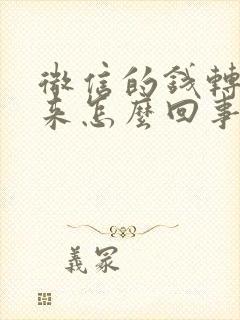 微信的钱轉
来怎麼回事
義冢